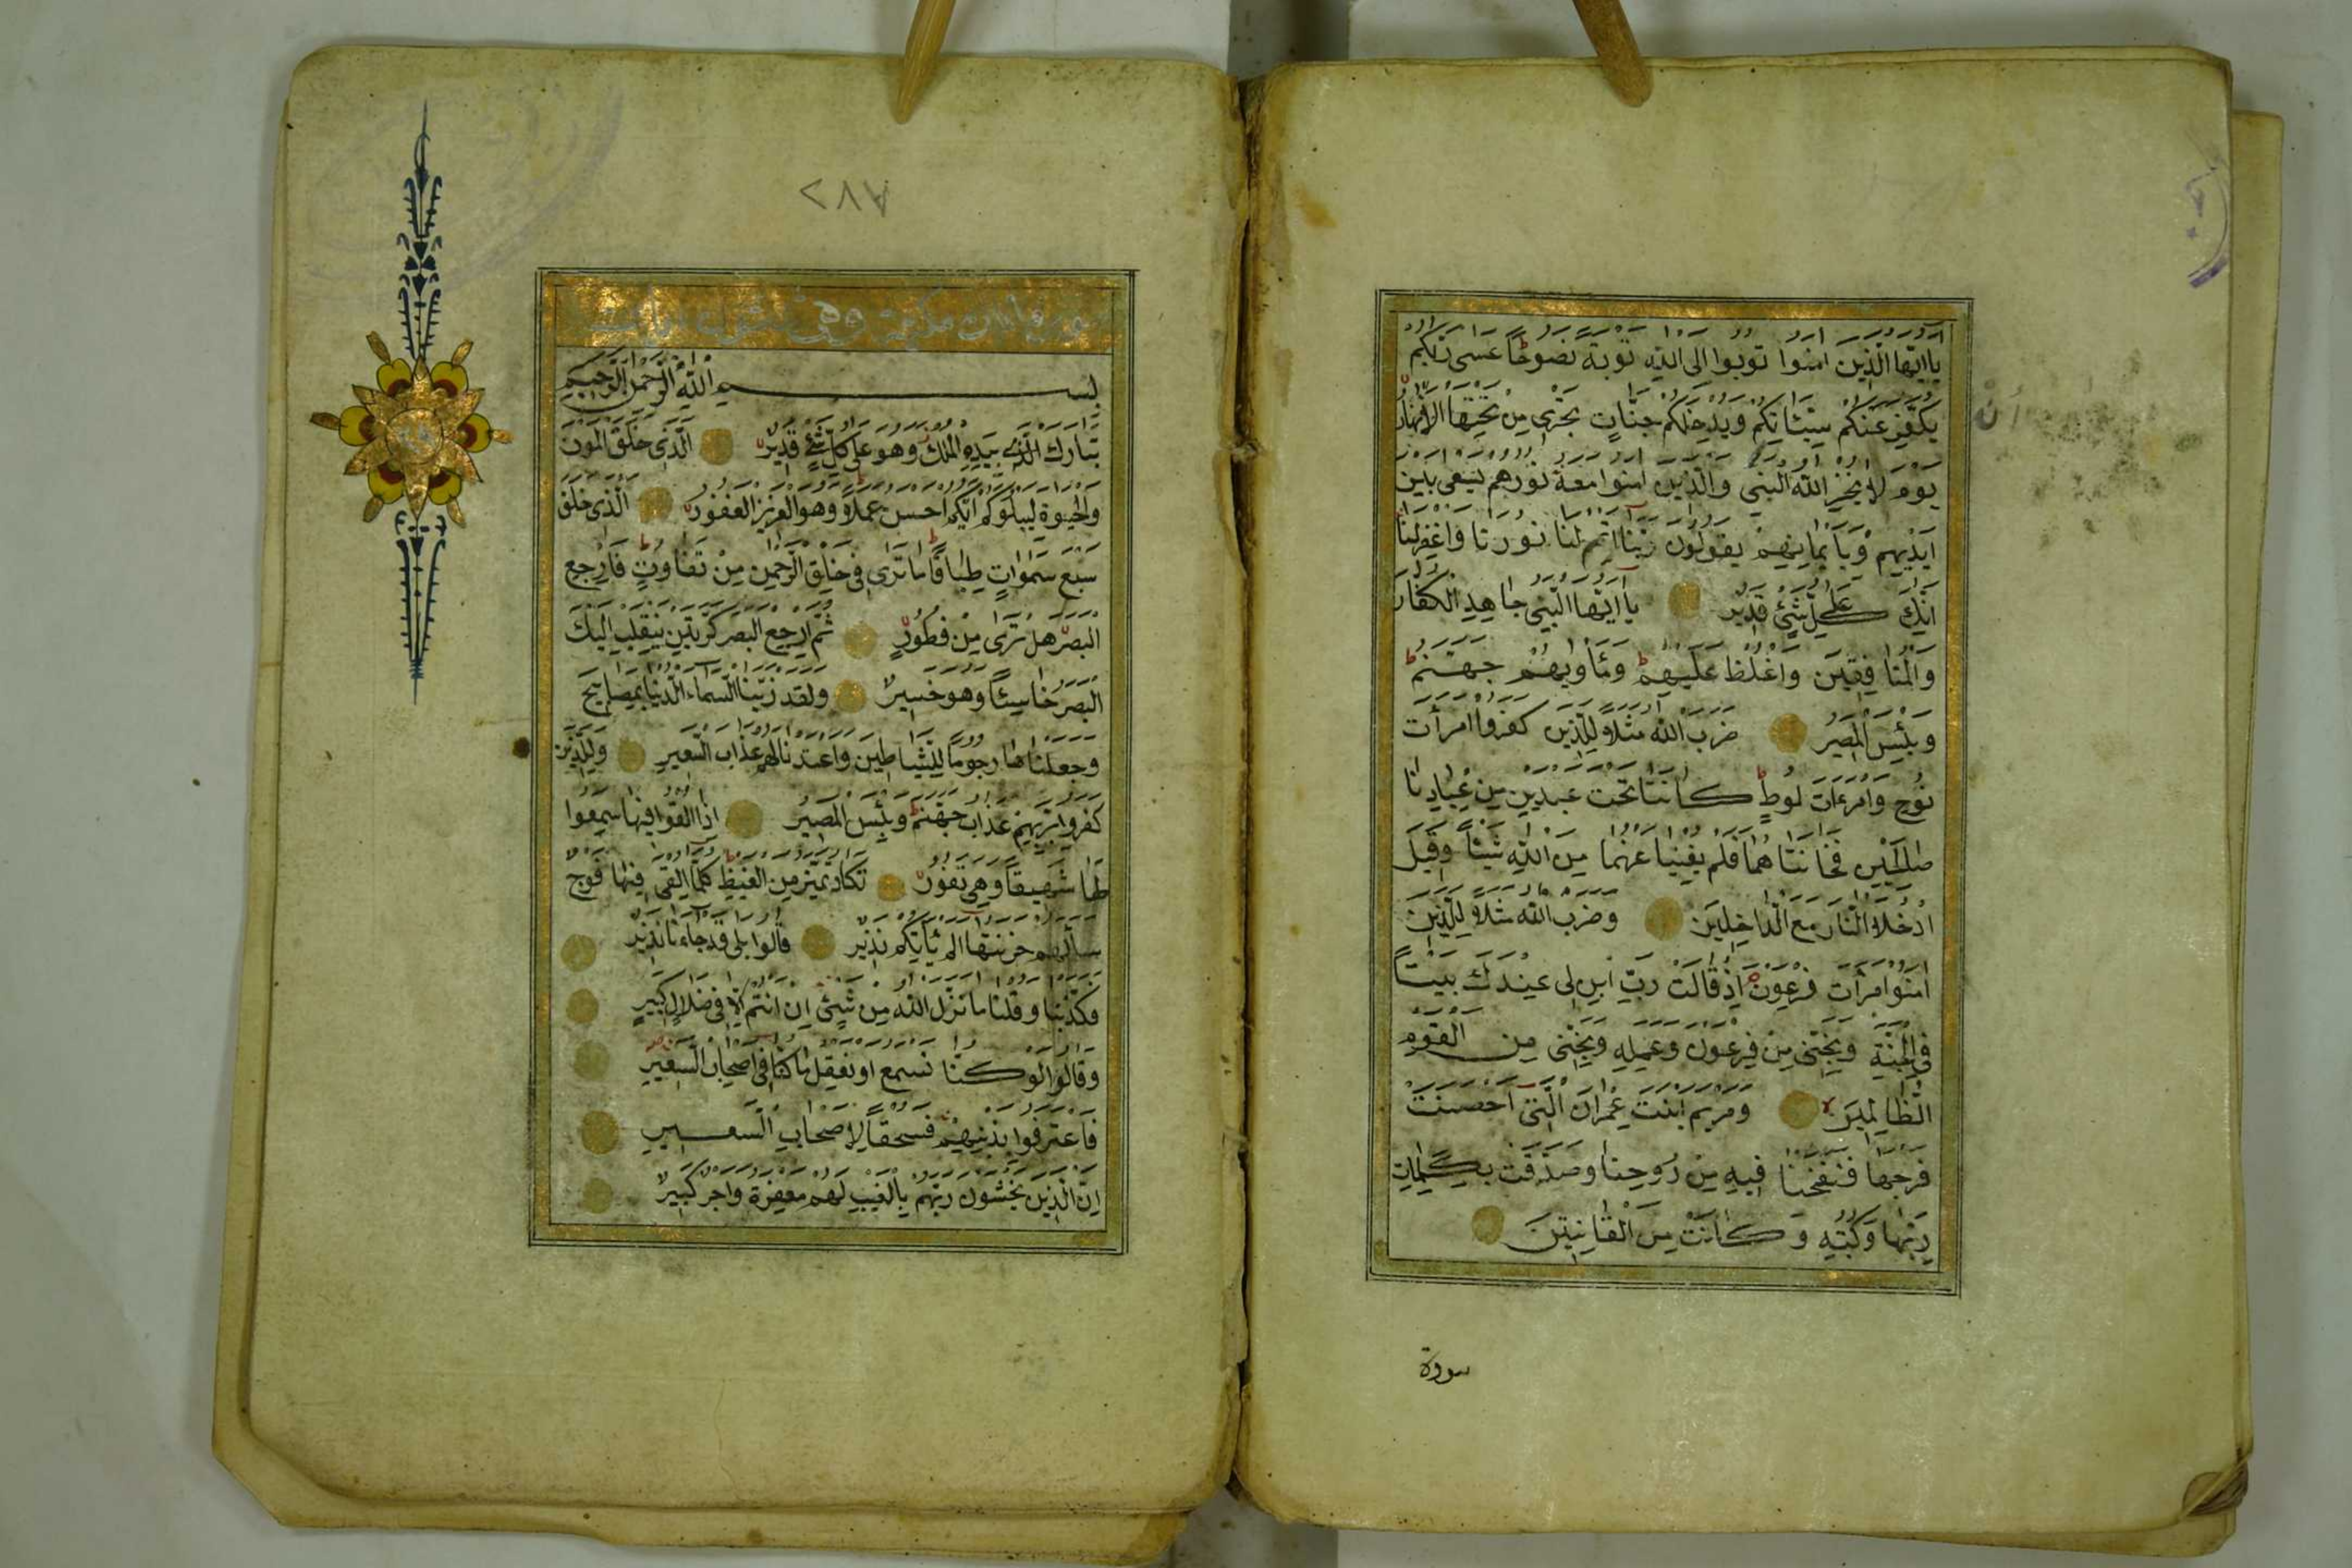 يا ايها الذين امنوا توبوا الى الله توبة نصوحا عسى ربكم
يكفر عنكم سيئاتكم ويدخلكم جنات تجرى من تحتها الانهار
يوم لا يخزى الله النبي والذين امنوا معه نورهم يسعى بين
ايديهم وبايمانهم يقولون ربنا اتمم لنا نورنا واغفر لنا
انك على كل شئ قدير يا ايها النبي جاهد الكفار
والمنافقين واغلظ عليهم ومأويهم جهنم
وبئس المصير ضرب الله مثلا للذين كفروا امرأت
نوح وامرءات لوط كانتا تحت عبدين من عبادنا
صالحين فخانتاهما فلم يغنيا عنهما من الله شيئا وقيل
ادخلا النار مع الداخلين وضرب الله مثلا للذين
امنوا امرأت فرعون اذ قالت رب ابن لى عندك بيتا
في الجنة ونجنى من فرعون وعمله ونجنى من القوم
الظالمين ومريم ابنت عمران التى احصنت
فرجها فنفخنا فيه من روحنا وصدقت بكلمات
ربها وكتبه وكانت من القانتين
سورة
٢٨٧
بسم الله الرحمن الرحيم
تبارك الذى بيده الملك وهو على كل شئ قدير الذى خلق الموت
والحيوة ليبلوكم ايكم احسن عملا وهو العزيز الغفور الذى خلق
سبع سموات طباقا ما ترى في خلق الرحمن من تفاوت فارجع
البصر هل ترى من فطور ثم ارجع البصر كرتين ينقلب اليك
البصر خاسئا وهو حسير ولقد زينا السماء الدنيا بمصابيح
وجعلناها رجوما للشياطين واعتدنا لهم عذاب السعير وللذين
كفروا بربهم عذاب جهنم وبئس المصير اذا القوا فيها سمعوا
لها شهيقا وهي تفور تكاد تميز من الغيظ كلما القى فيها فوج
سألهم خزنتها الم يأتكم نذير قالوا بلى قد جاءنا نذير
فكذبنا وقلنا ما نزل الله من شئ ان انتم الا في ضلال كبير
وقالوا لو كنا نسمع او نعقل ما كنا في اصحاب السعير
فاعترفوا بذنبهم فسحقا لاصحاب السعير
ان الذين يخشون ربهم بالغيب لهم مغفرة واجر كبير